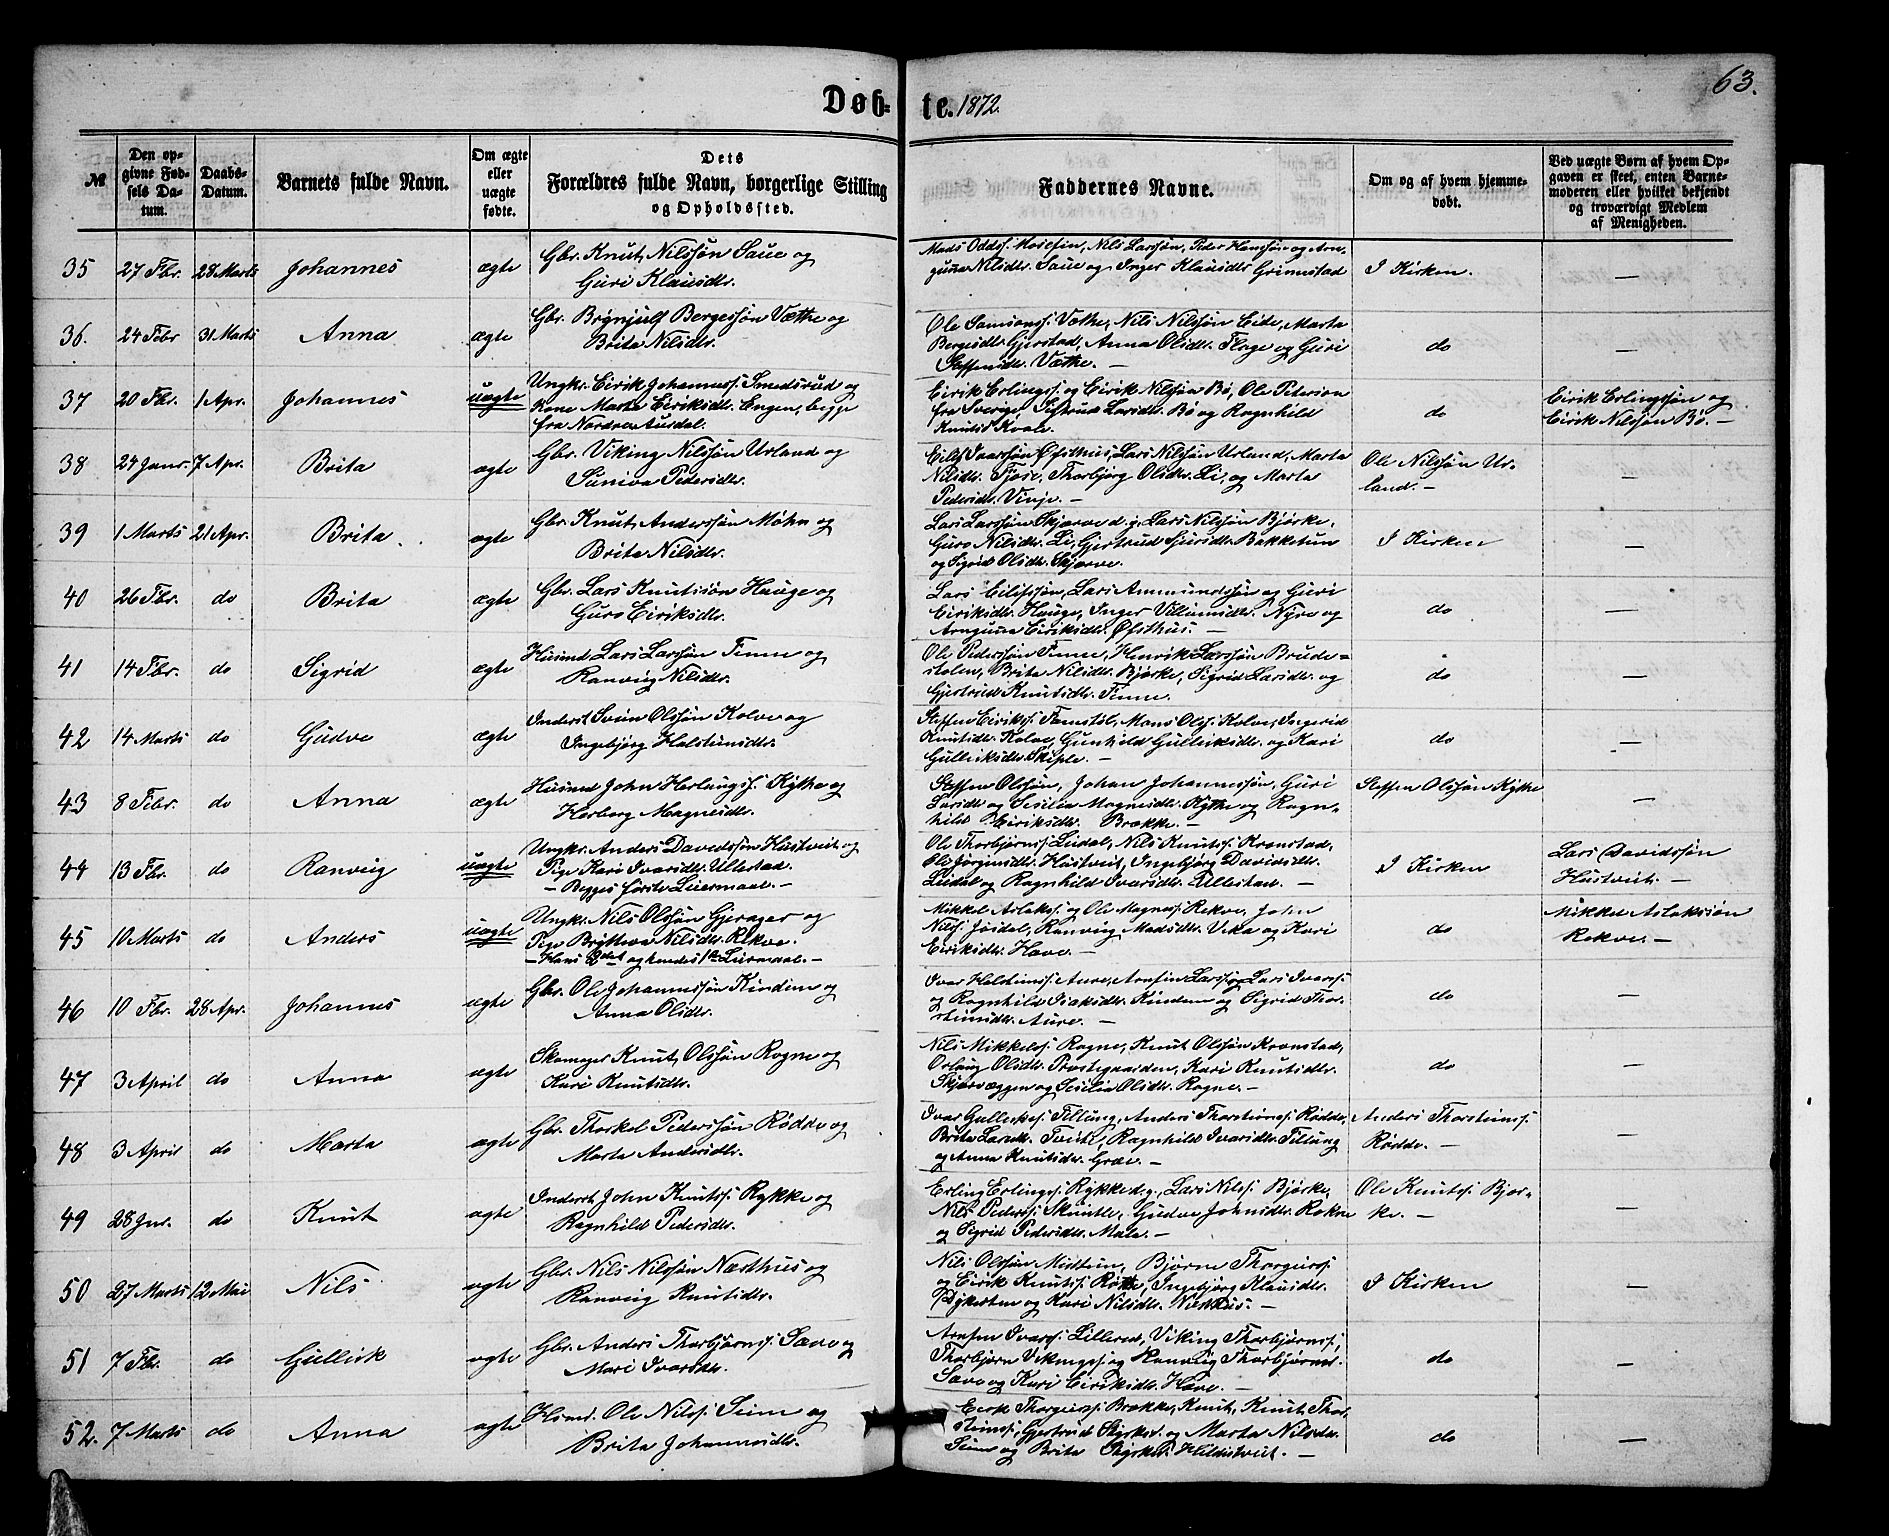 63.
Døb-te. 1872.
№ | Den opgivne Fødsels Datum. | Daabs-Datum. | Barnets fulde Navn. | Om ægte eller uægte fødte. | Dets Forældres fulde Navn, borgerlige Stilling og Opholdssted. | Faddernes Navne. | Om og af hvem hjemmedøbt. | Ved uægte Børn af hvem Opgaven er skeet, enten Barnemoderen eller hvilket bekjendt og troværdigt Medlem af Menigheden.
35 | 27 Fbr. | 28 Marts | Johannes | ægte | Gbr. Knut Nilssøn Saue og
Guri Klausdtr. | Nils Larssøn, Peder Hanssøn og Arn-
guna Nilsdtr. Saue og Inger Klausdtr. Grimestad | I Kirken. | —
36. | 24 Febr | 31 Marts | Anna | ægte | Gbr. Brynjulf Bergessøn Væthe og
Brita Nilsdtr. | Ole Samsons. Væthe, Nils Nilssøn Eide, Marta
Bergesdtr. Gjerstad, Anna Olsdtr. Flage og Guri
Steffensdtr. Væthe. — | do | —
37 | 20 Fbr. | 1 Apr. | Johannes | uægte | Ungkr. Eirik Johanness. Smedsrud og
Kone Marta Eiriksdtr. Engen, begge
fra Nordre Aurdal. | Eirik Erlings. og Eirik Nilssøn Bø, Ole Peterson
fra Sverige, Larsdtr. Bø og Ragnhild
Knutsd Kvale. | do | Eirik Erlingssøn og
Eirik Nilssøn Bø. —
38 | 24 Janr. | 7 Apr. | Brita | ægte | Gbr. Viking Nilssøn Urland og
Suniva Pedersdtr. | Eilef Ivarssøn Øfsthus, Lars Nilssøn Urland, Marta
Nilsdtr. Fjose, Thorbjørg Olsdtr. Li, og Marta
Pedersdtr. Vinje. — | Ole Nilssøn Ur-
land. — | —
39 | 1 Marts | 21 Apr. | Brita | ægte | Gbr. Knut Anderssøn Møhn og
Brita Nilsdtr. | Lars Larssøn Skjerve d. y. Lars Nilssøn Bjørke,
Guro Nilsdtr. Li, Gjertrud Sjursdtr. Bakketun
og Sigrid Olsdtr. Skjerve. | I Kirken | —
40 | 26 Fbr. | do | Brita | ægte | Gbr. Lars Knutssøn Hauge og
Guro Eiriksdtr. | Lars Eilifssøn, Lars Ammundssøn og Guri
Eiriksdtr. Hauge, Inger Villumsdtr. Nyre og
Arnguna Eiriksdtr. Øfsthus. — | do | —
41 | 14 Fbr. | do | Sigrid | ægte | Husmd Lars Larssøn Finne og
Ranveig Nilsdtr. | Ole Pederssøn Finne, Henrik Larssøn Brude-
stolen, Brita Nilsdtr. Bjørke, Sigrid Larsdtr. og
Gjertrud Knutsdtr. Finne. | do | —
42 | 14 Marts | do | Gudve | ægte | Inderst Svein Olssøn Kolve og
Ingebjørg Halsteinsdtr. | Steffen Eiriks. Mons Ols. Kolve, Ingerid
Knutsdtr. Kolve, Gunhild Gulleiksdtr. og Kari
Gulleiksdtr. Skiple. — | do | —
43 | 8 Febr. | do | Anna | ægte | Husmd John Herlaugs. Kythe og
Herborg Magnesdtr. | Steffen Olssøn, Johan Johannessøn, Guri
Larsdtr og Sesilia Magnesdtr. Kythe og Ragn-
hild Eiriksdtr. Brække. — | Steffen Olssøn Kythe | —
44 | 13 Fbr. | do | Ranveig | uægte | Ungkr. Anders Davidssøn Hustveit og
Pige Kari Ivarsdtr. Ullestad.
— Begges første Leiermaal. — | Ole Thorbjørns. Lydal, Nils Knuts. Kronstad,
Hustveit, Ingebjørg Davidsdtr.
og Ragnhild Ivarsdtr. Ullestad. — | I Kirken | Lars Davidssøn
Hustveit. —
45 | 10 Marts | do | Anders | uægte | Ungkr. Nils Olssøn Gjerager og
Pige Nilsdtr. Rekve.
— Hans 2det og hendes 1ste Leiermaal. — | Mikkel Aslaks. og Ole Magnes. Rekve, John
Nils. Ranveig Madsdtr. Veka og Kari
Eiriksdtr. Hæve. — | do | Mikkel Aslakssøn
Rekve. —
46 | 10 Fbr. | 28 Apr. | Johannes | ægte | Gbr. Ole Johannessøn Kindem og
Anna Olsdtr. | Ivar Halsteins. Aure, Arnfin Larss. og Lars Ivars.
og Ragnhild Isaksdtr. Kindem og Sigrid Thor-
steinsdtr. Aure. — | do | —
47 | 3 April | do | Anna | ægte | Skomager Knut Olssøn Rogne og
Kari Knutsdtr. | Nils Mikkels. Rogne, Knut Olssøn Kronstad,
Olsdtr. Prestegaarden, Kari Knutsdtr.
og Sesilia Olsdtr. Rogne. — | do | —
48 | 3 April | do | Marta | ægte | Gbr. Thorkel Pederssøn Rødde og
Marta Andersdtr. | Ivar Gulleiks. Tillung, Anders Thorsteins. Rødde,
Brita Larsdtr. Tveite, Ragnhild Ivarsdtr. Tillung
og Anna Knutsdtr. Græe. — | Anders Thorsteins.
Rødde. — | —
49 | 28 Jnr. | do | Knut | ægte | Inderst John Knuts. Rykke og
Ragnhild Pedersdtr. | Erling Erlings. Rykke d. y., Lars Nils. Bjørke,
Nils Peders. Skutle, Gudve Johnsdtr. Rokne
og Sigrid Pedersdtr. Male. — | Ole Knuts. Bjør-
ke. — | —
50 | 27 Marts | 12 Mai | Nils | ægte | Gbr. Nils Nilssøn Næsthus og
Ranveig Knutsdtr. | Nils Olssøn Midtun, Bjørne Thorgeirs.
og Eirik Knuts. Røthe, Ingebjørg Klausdtr.
og Kari Nilsdtr. Nesthus. — | I Kirken | —
51 | 7 Fbr. | do | Gullick | ægte | Gbr. Anders Thorbjørns. Sæve og
Mari Ivarsdtr. | Arnfin Ivars. Lillereid, Viking Thorbjørns.,
Thorbjørn Vikings. og Ranveig Thorbjørnsd.
Sæve og Kari Eiriksdtr. Hæve. — | do | —
52. | 7 Marts | do | Anna | ægte | Husmd. Ole Nils. Seim og
Brita Johannesdtr. | Eirik Thorgeirs. Brække, Knut, Knut Thor-
steins., Gjertrud Styrksd. og Marta Nilsdtr.
Seim og Brita Styrksd. Hildestveit. — | do | —